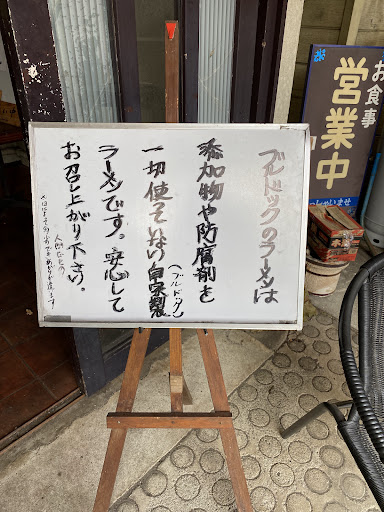 ブルドックのラーメンは
添加物や防腐剤を
一切使っていない自家製
(ブルドック)
ラーメンです。安心して
お召し上がり下さい。
お食事
営業中
っしゃいませ